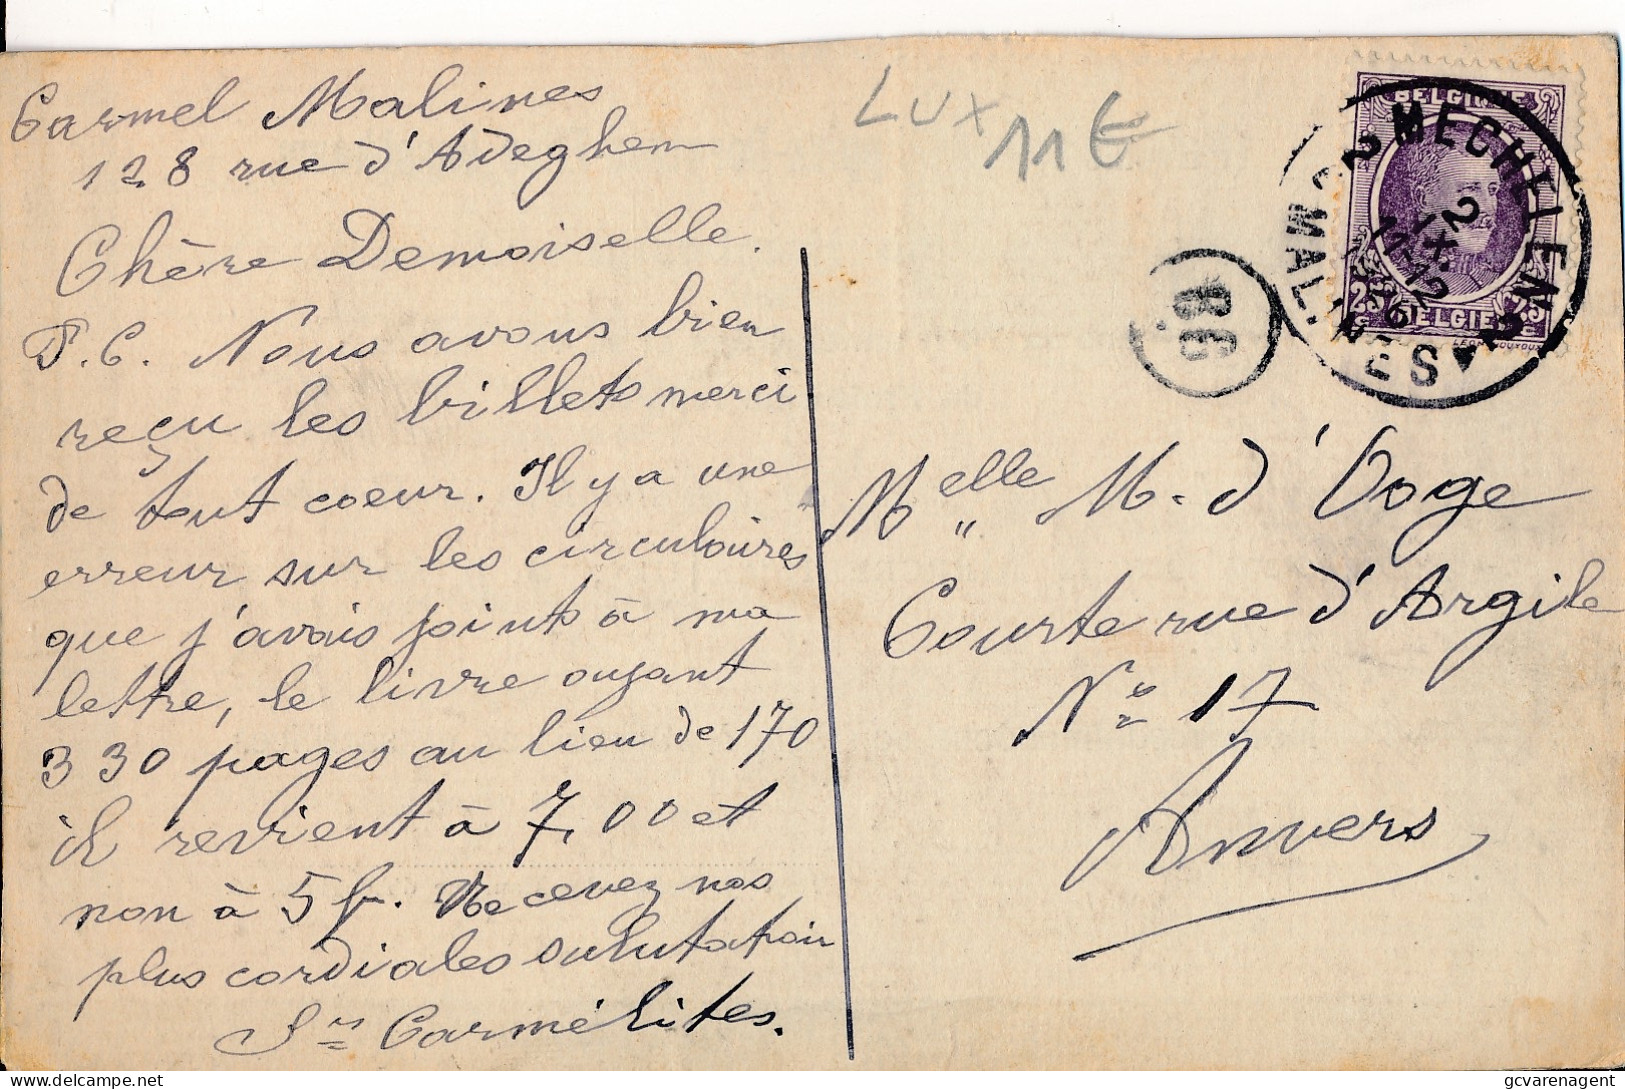 Carmel Malines
128 rue d'Adeghem
Chère Demoiselle.
P.C. Nous avons bien
reçu les billets merci
de tout coeur. Il y a une
erreur sur les circulaires
que j'avais joints à ma
lettre, le livre ayant
330 pages au lieu de 170
il revient à 7,00 et
non à 5 fr. Recevez nos
plus cordiales salutation
Sr Carmélites.
LUX 11 €
BELGIQUE
25 25
BELGIE
MECHELEN 2
2 IX 11-12
MALINES 2
B6
Melle M. d'Voge
Courte rue d'Argile
No 17
Anvers
delcampe.net
gcvarenagent